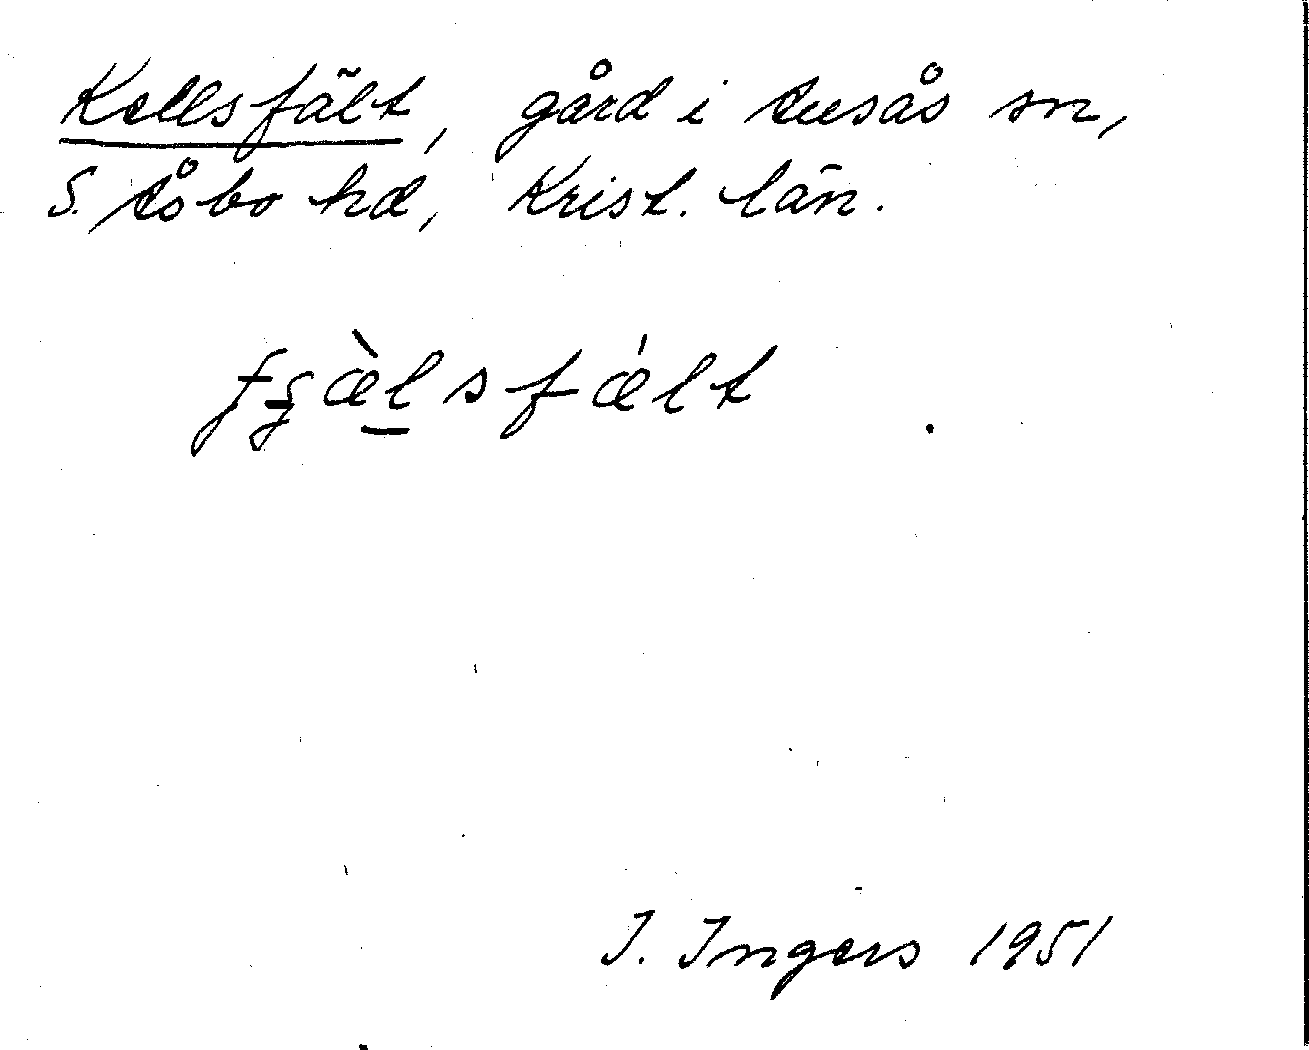 Kellsfält, gård i Lusås sn,
S. Åsbo hd, Krist. län.
fɟæ̀lsfǽlt
I. Ingers 1951